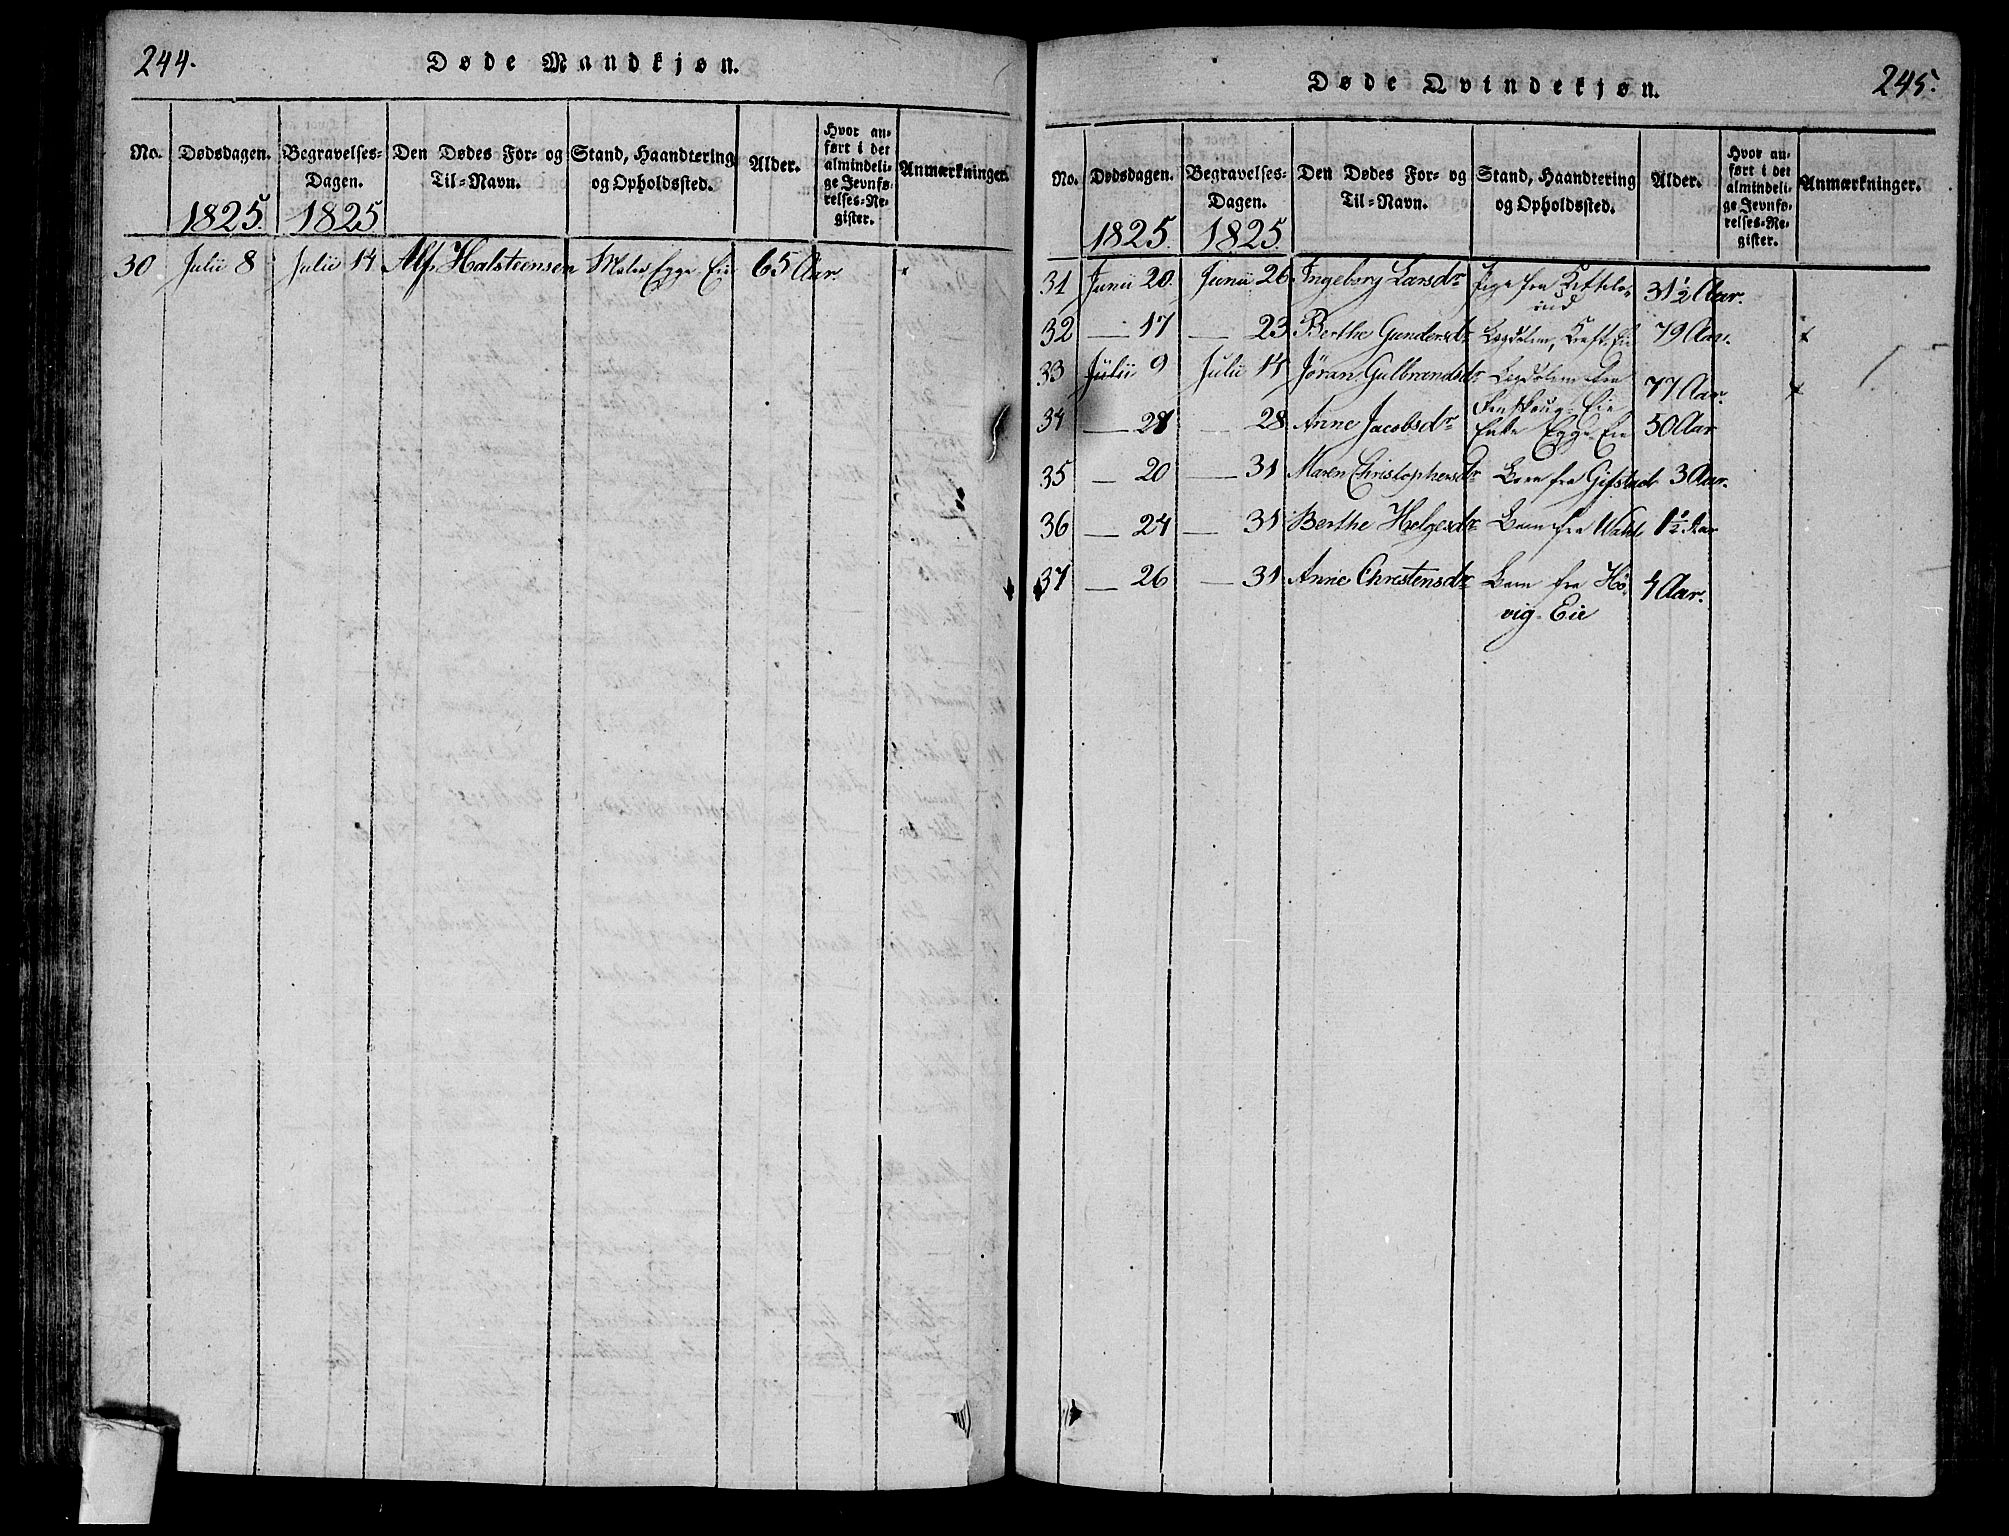 244.
Døde Mandkjøn.
No.
Dødsdagen.
1825.
Begravelses-
Dagen.
1825
Den Dødes For- og
Til-Navn.
Stand, Haandtering
og Opholdssted.
Alder.
Hvor an-
ført i det
almindeli-
ge Jevnfø-
relses-Re-
gister.
Anmærkninger.
30 Julii 8 Julii 14 Alf Halsteensen Egge Eie 65 Aar.
245.
Døde Qvindekjøn.
No.
Dødsdagen.
1825.
Begravelses-
Dagen.
1825.
Den Dødes For- og
Til-Navn.
Stand, Haandtering
og Opholdssted.
Alder.
Hvor an-
ført i det
almindeli-
ge Jevnfø-
relses-Re-
gister.
Anmærkninger.
31 Junii 20. Junii 26. Ingeborg Larsdr Pige fra 31½ Aar.
32 — 17 — 23 Berthe Gundersdr Lægdslem, Eie 79 Aar. x
33 Julii 9 Julii 14 Jøran Gulbrandsdr Lægdslem fra 77 Aar. x
Eie
34 — 21 — 28 Anne Jacobsdr Enke Egge-Eie 50 Aar
35 — 20 — 31 Maren Christophersdr Barn fra Gifstad 3 Aar.
36 — 24 — 31 Berthe Helgesdr Barn fra 1½ Aar
37 — 26 — 31 Anne Christensdr Barn fra Hø- 4 Aar.
vig-Eie